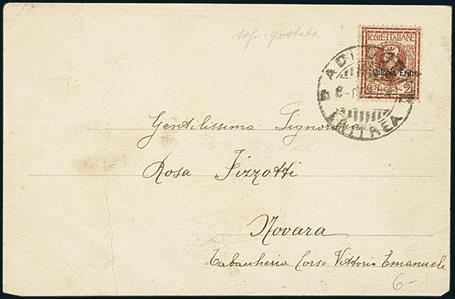 POSTE ITALIANE
Colonia Eritrea
ADI CAIÈ
ERITREA
Gentilissima Signorina
Rosa Fizzotti
Novara
Tabaccheria Corso Vittorio Emanuele
6-